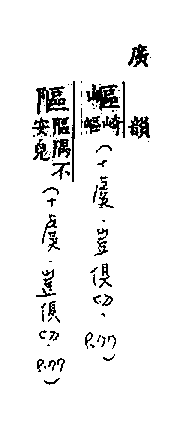 廣韻
嶇 崎嶇（十虞．豈俱切．P.77）
䧢 䧢隅不安皃（十虞．豈俱切．P.77）